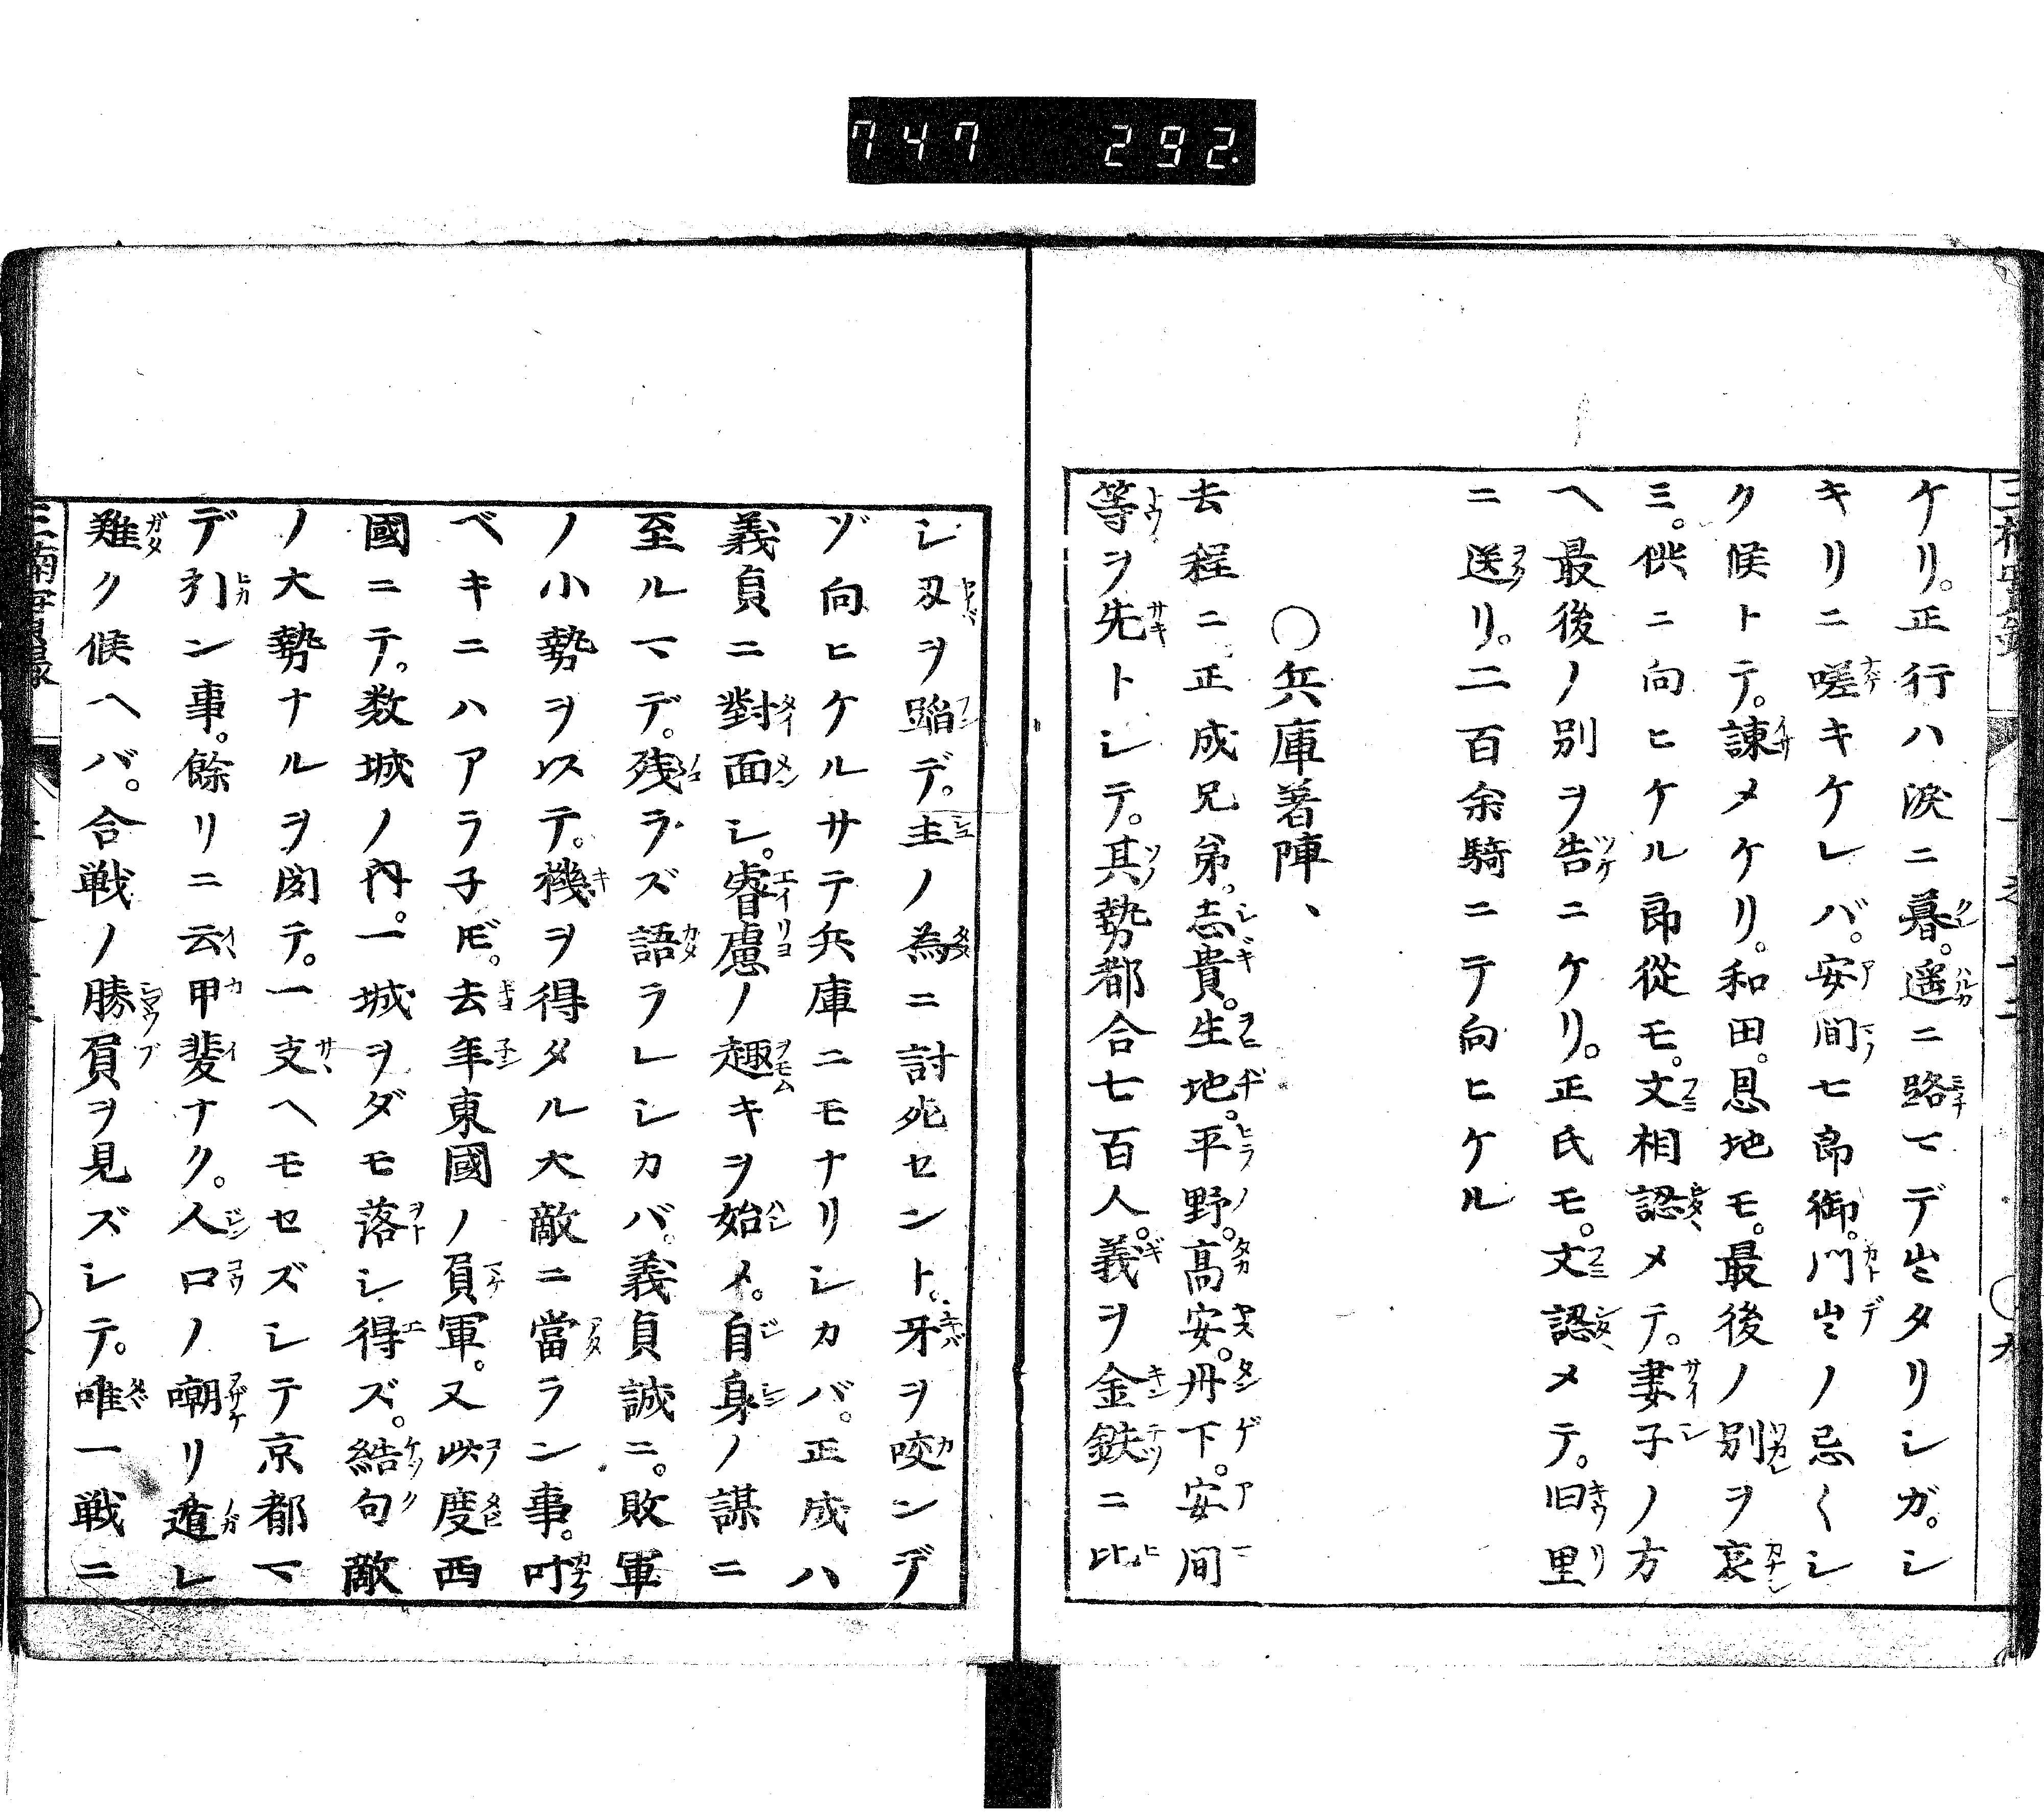 747 292.
ケリ。正行ハ涙ニ暮。遥ニ路マデ出タリシガ。シ
キリニ嗟キケレバ。安間七郎御。門出ノ忌〱シ
ク候トテ。諌メケリ。和田。恩地モ。最後ノ別ヲ哀
ミ。供ニ向ヒケル郎従モ。文相認メテ。妻子ノ方
ヘ最後ノ別ヲ告ニケリ。正氏モ。文認メテ。旧里
ニ送リ。二百余騎ニテ向ヒケル
〇兵庫著陣、
去程ニ正成兄弟。志貴。生地。平野。高安。丹下。安間
等ヲ先トシテ。其勢都合七百人。義ヲ金鉄ニ比
シ刄ヲ蹈デ。主ノ為ニ討死セント。牙ヲ咬ンデ
ゾ向ヒケルサテ兵庫ニモナリシカバ。正成ハ
義貞ニ對面シ。睿慮ノ趣キヲ始メ。自身ノ謀ニ
至ルマデ。残ラズ語ラレシカバ。義貞誠ニ。敗軍
ノ小勢ヲ以テ。機ヲ得タル大敵ニ當ラン事。叶
ベキニハアラ子𪜈。去年東國ノ負軍。又此度西
國ニテ。数城ノ内。一城ヲダモ落シ得ズ。結句敵
ノ大勢ナルヲ聞テ。一支ヘモセズシテ京都マ
デ引ン事。餘リニ云甲斐ナク。人口ノ嘲リ遁レ
難ク候ヘバ。合戦ノ勝負ヲ見ズシテ。唯一戦ニ